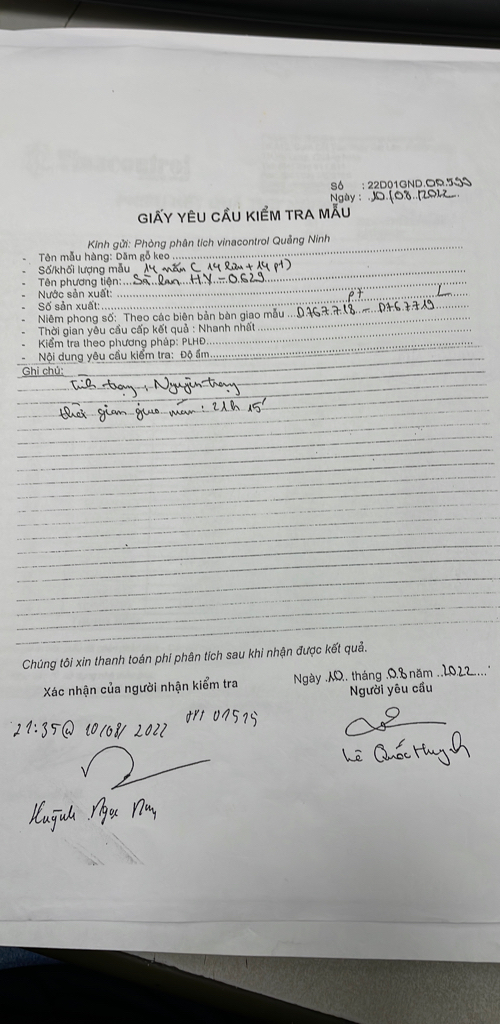 Số : 22D01GND.00.599
Ngày : 10/08/2022
GIẤY YÊU CẦU KIỂM TRA MẪU
Kính gửi: Phòng phân tích vinacontrol Quảng Ninh
- Tên mẫu hàng: Dăm gỗ keo
- Số/khối lượng mẫu 14 mẫu ( 14 lưu + 14 pt)
- Tên phương tiện: Sà lan HY-0629
- Nước sản xuất:
- Số sản xuất:
- Niêm phong số: Theo các biên bản bàn giao mẫu D767718 pt - D767719 L
- Thời gian yêu cầu cấp kết quả : Nhanh nhất
- Kiểm tra theo phương pháp: PLHĐ
- Nội dung yêu cầu kiểm tra: Độ ẩm
Ghi chú:
Tình trạng: Nguyên trạng
thời gian giao mẫu: 21h 15'
Chúng tôi xin thanh toán phí phân tích sau khi nhận được kết quả.
Ngày 10 tháng 08 năm 2022
Xác nhận của người nhận kiểm tra
Người yêu cầu
21:35 @ 10/08/ 2022 01515
Lê Quốc Huynh
Huỳnh Ngọc